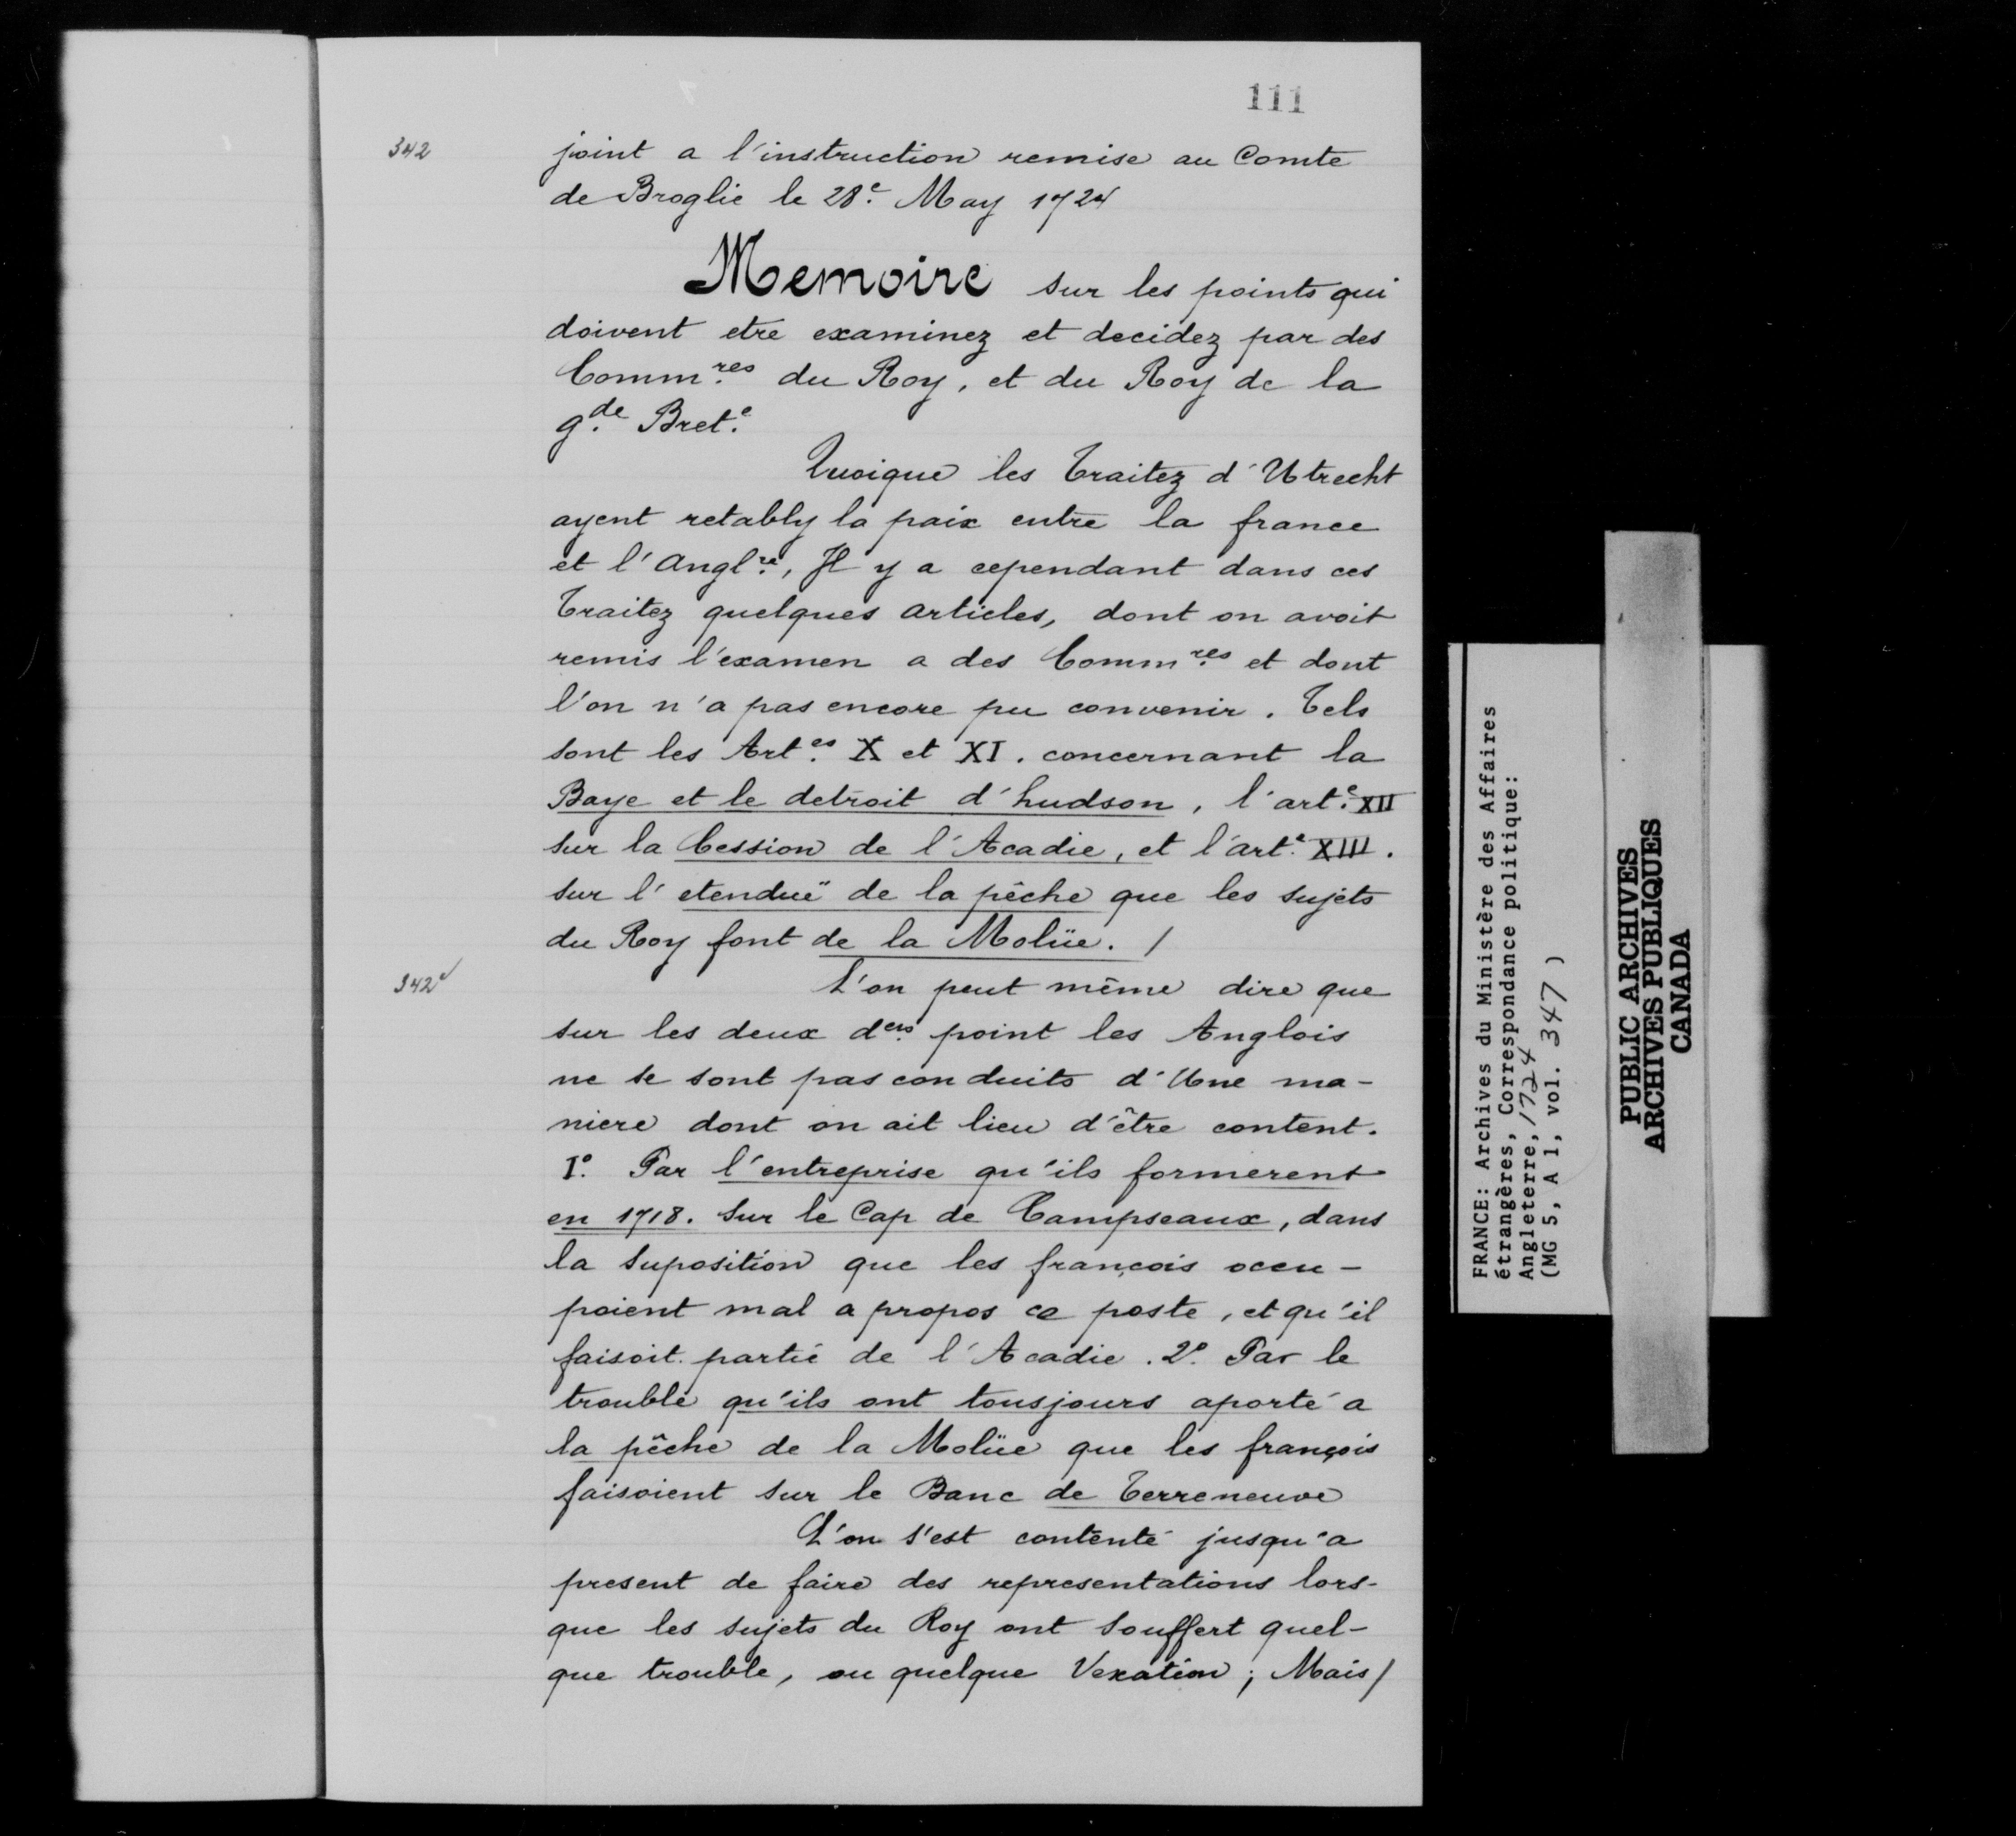 111
342
joint a l'instruction remise au Comte
de Broglie le 28e. May 1724
Memoire sur les points qui
doivent etre examinez et decidez par des
Commres. du Roy, et du Roy de la
gde. Brete.
Quoique les Traitez d'Utrecht
ayent retably la paix entre la france
et l'Anglre., Il y a cependant dans ces
Traitez quelques articles, dont on avoit
remis l'examen a des Commres. et dont
l'on n'a pas encore pu convenir. Tels
sont les Artes. X et XI. concernant la
Baye et le detroit d'hudson, l'arte. XII
sur la Cession de l'Acadie, et l'arte. XIII.
sur l'etenduë de la pêche que les sujets
du Roy font de la Molüe. /
342v
L'on peut même dire que
sur les deux ders. point les Anglois
ne se sont pas conduits d'Une ma-
niere dont on ait lieu d'être content.
1o. Par l'entreprise qu'ils formerent
en 1718. sur le Cap de Campseaux, dans
la suposition que les françois occu-
poient mal a propos ce poste, et qu'il
faisoit partie de l'Acadie. 2o. Par le
trouble qu'ils ont tousjours aporté a
la pêche de la Molüe que les françois
faisoient sur le Banc de Terreneuve
L'on s'est contenté jusqu'a
present de faire des representations lors-
que les sujets du Roy ont souffert quel-
que trouble, ou quelque Vexation; Mais /
FRANCE: Archives du Ministère des Affaires
étrangères, Correspondance politique:
Angleterre, 1724
(MG 5, A 1, vol. 347 )
PUBLIC ARCHIVES
ARCHIVES PUBLIQUES
CANADA